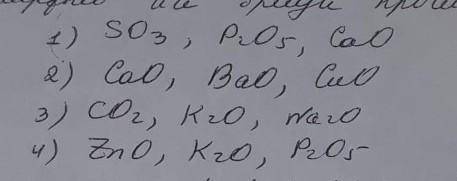 1) SO3, P2O5, CaO
2) CaO, BaO, CuO
3) CO2, K2O, Na2O
4) ZnO, K2O, P2O5